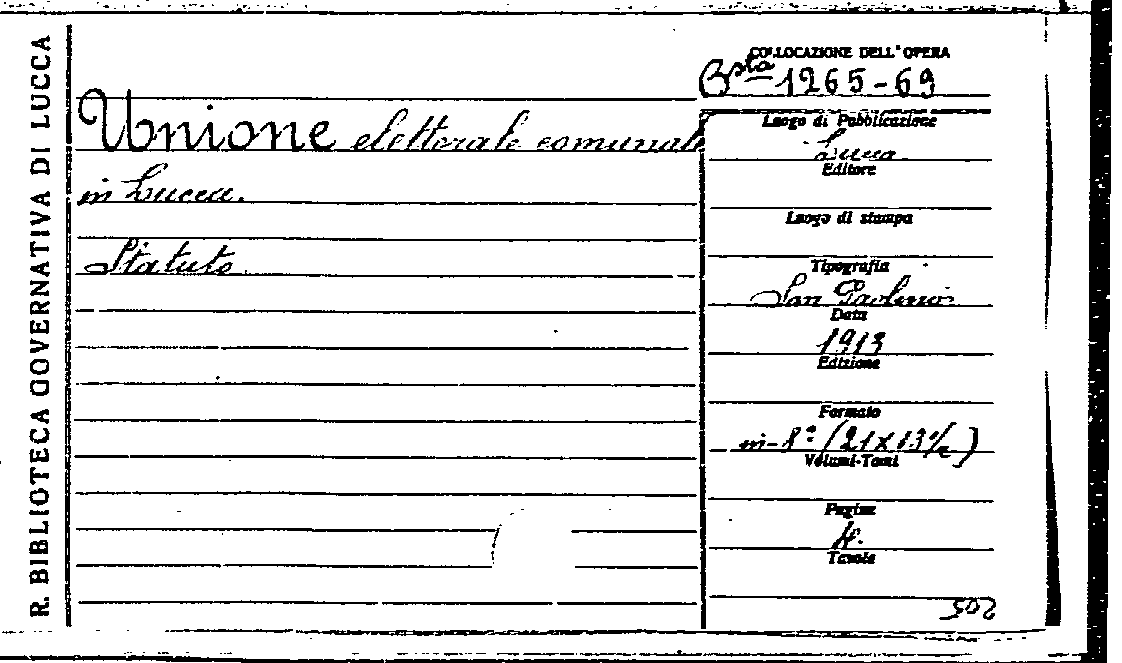 R. BIBLIOTECA GOVERNATIVA DI LUCCA
COLLOCAZIONE DELL'OPERA
Bsta 1265-69
Unione elettorale comunale
in Lucca.
Statuto
Luogo di Pubblicazione
Lucca
Editore
Luogo di stampa
Tipografia
San Paolino
Data
1913
Edizione
Formato
in-8° (21x13½)
Volumi-Tomi
Pagine
4.
Tavole
502